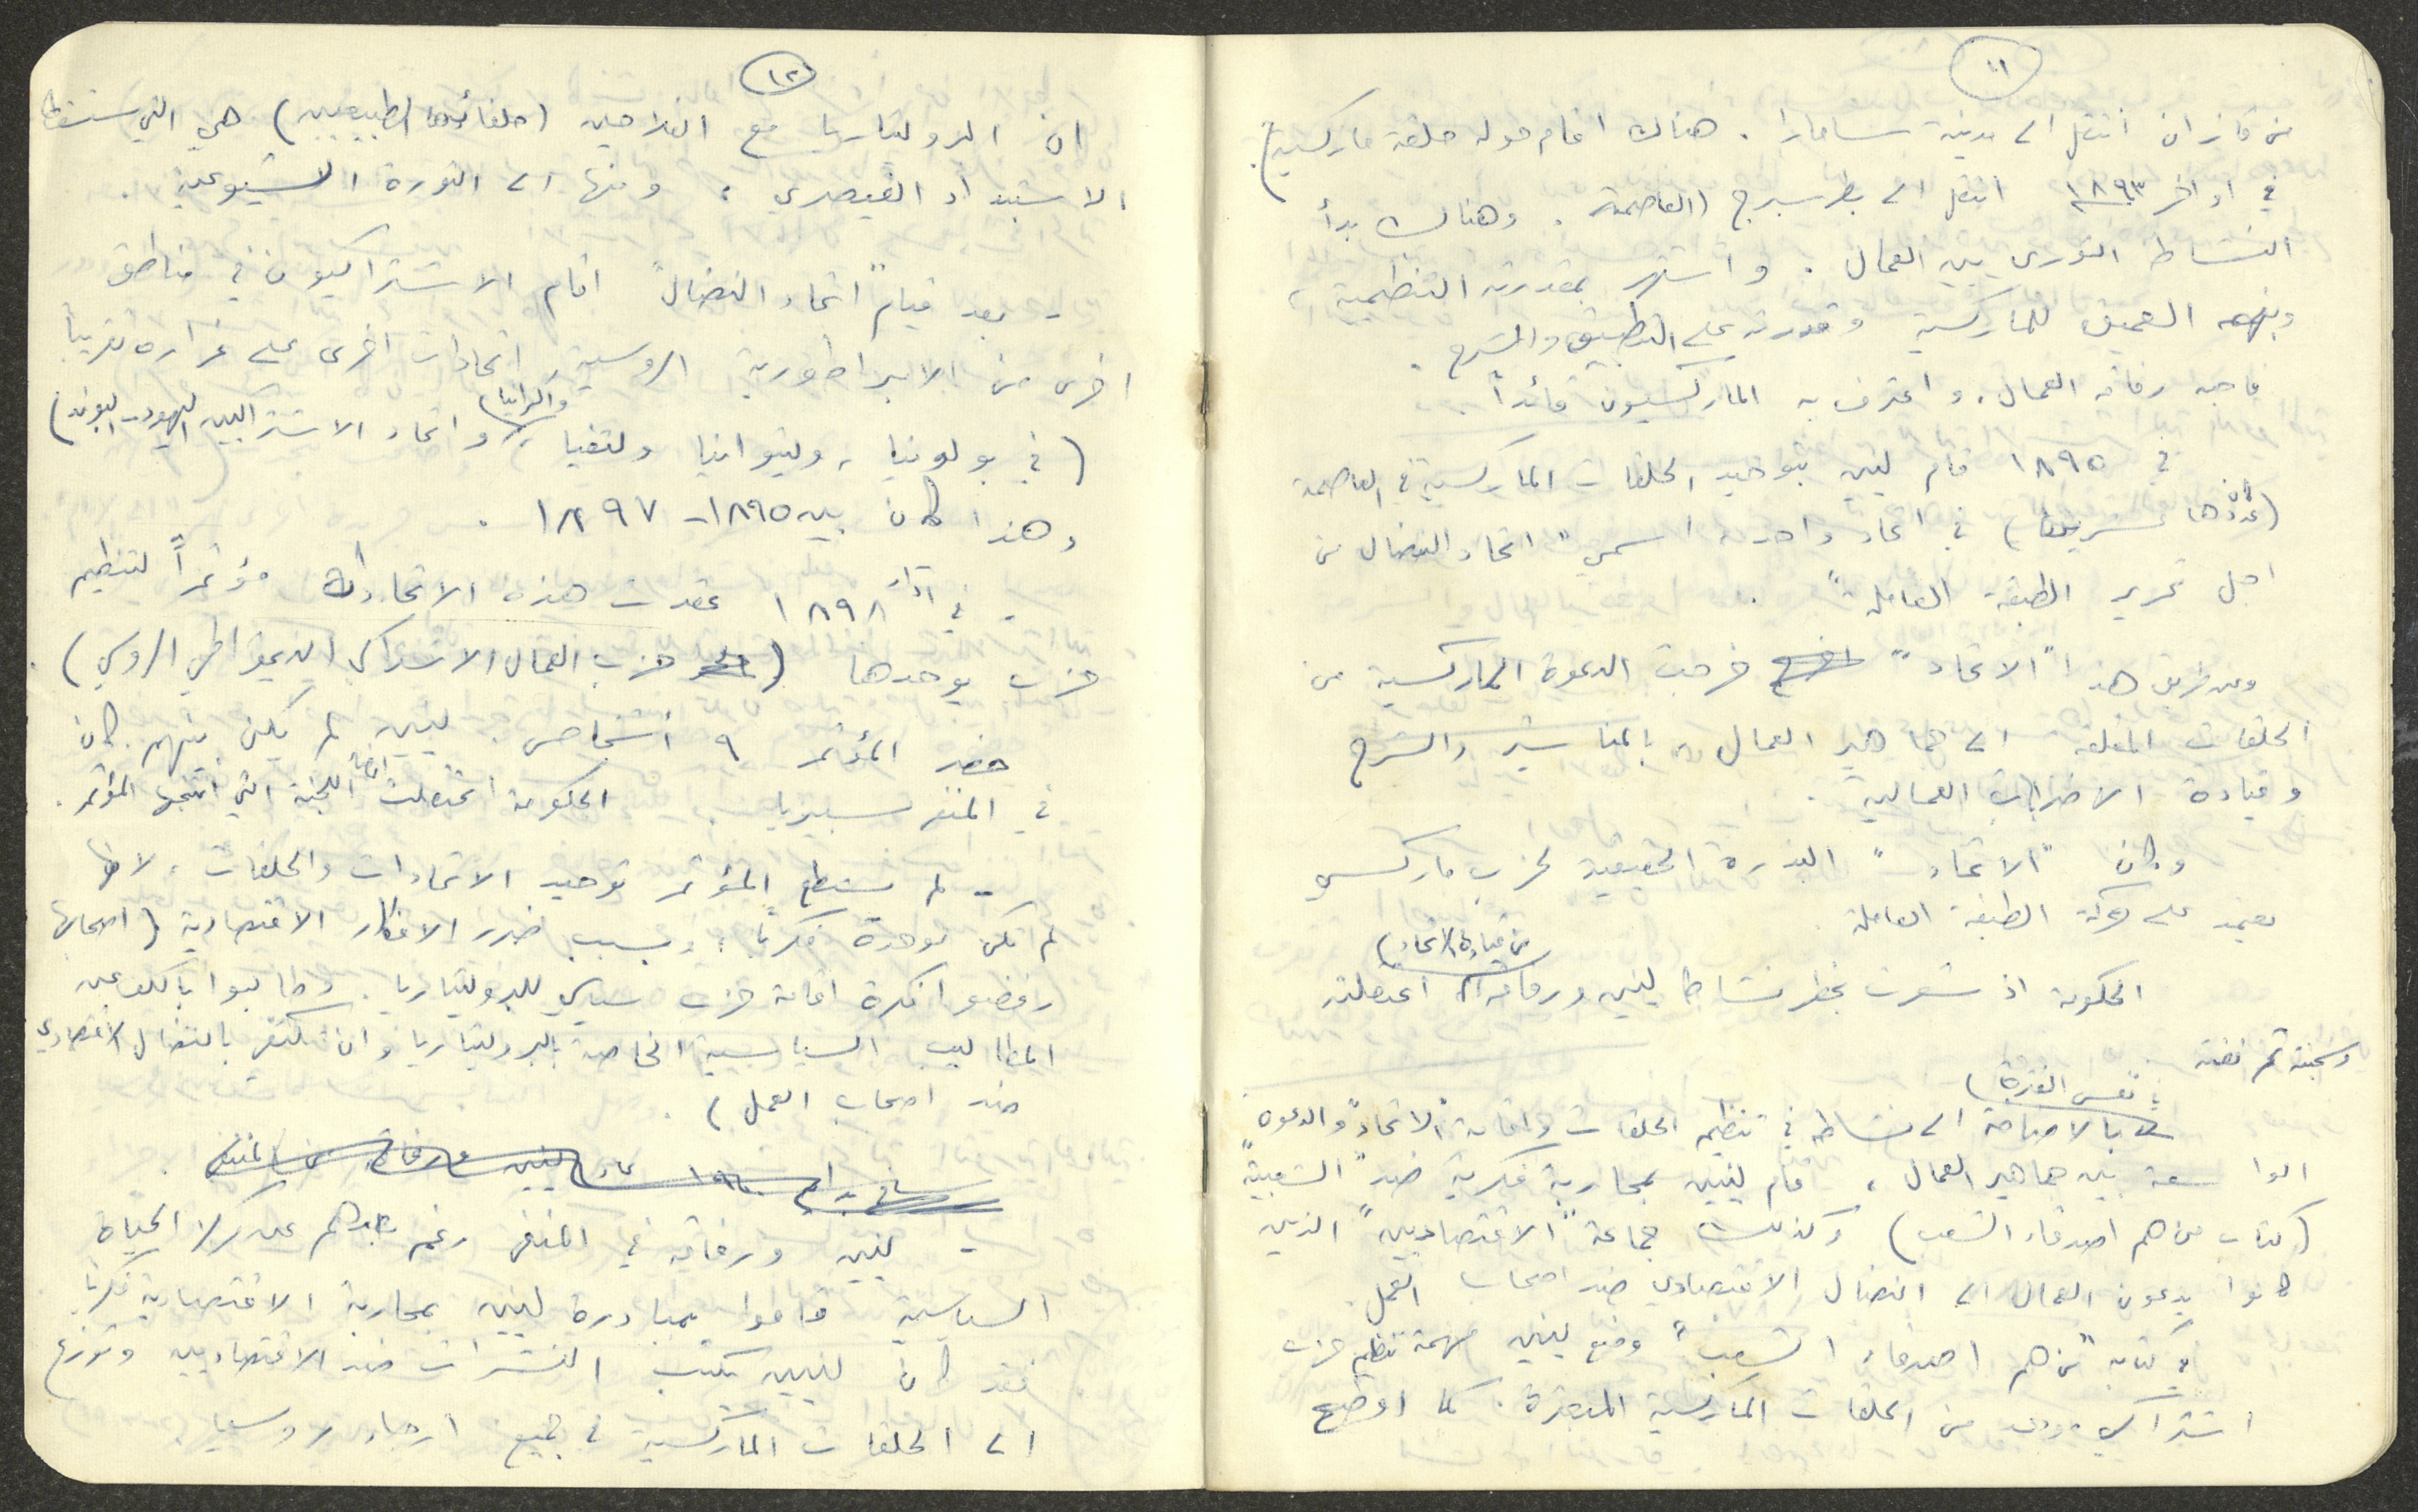 ١١
من قازان انتقل الى مدينة سامارا . هناك اقام حوله حلقة ماركسية) .
في اواخر ١٨٩٣ انتقل الى بطرسبرج (العاصمة . وهناك بدأ
النشاط الثوري بين العمال . واشتهر بمقدرته التنظيمية ،
وفهمه العميق للماركسية وقدرته على التطبيق والشرح .
فاحبه رفاقه العمال ، واعترف به الماركسيون قائداً .
في ١٨٩٥ قام لينين بتوحيد الحلقات الماركسية في العاصمة
(عددها عشرين) في اتحاد واحد ، اسمي " اتحاد النضال من
اجل تحرير الطبقة العاملة " .
وعن طريق هذا " الاتحاد " خرجت الدعوة الماركسية من
الحلقات المغلقة الى جماهير العمال ، بالمناشير والشرح
وقيادة الاضرابات العمالية .
وكان " الاتحاد " البذرة الحقيقية لحزب ماركسي
يعتمد على حركة الطبقة العاملة
من قيادة الاتحاد)
الحكومة اذ شعرت بخطر نشاط لينين ورفاقه اعتقلته
وسجنته ثم نفته .
بنفس الفترة)
بالاضافة الى نشاطه في تنظيم الحلقات واقامة "الاتحاد" والدعوة
الواسعة بين جماهير العمال ، قام لينين بمحاربة فكرية ضد " الشعبية "
(كتاب من هم اصدقاء الشعب) وكذلك جماعة " الاقتصاديين " الذين
كانوا يدعون العمال الى النضال الاقتصادي ضد اصحاب العمل .
في كتابه " من هم اصدقاء الشعب " وضع لينين مهمة تنظيم حزب
اشتراكي موحد من الحلقات الماركسية المبعثرة . كما اوضح
١٢
ان البروليتاريا مع الفلاحين (حلفائها الطبيعيين) هي التي ستسقط
الاستبداد القيصري ؛ ومنها الى الثورة الشيوعية .
- بعد قيام " اتحاد النضال " اقام الاشتراكيون في مناطق
اخرى من الامبراطورية الروسية ، اتحادات اخرى على غراره تقريباً
واكرانيا)
(في بولونيا ، وليتوانيا ولتفيا ، واتحاد الاشتراكيين اليهود - البوند)
وهذا كان بين ١٨٩٥ - ١٨٩٧ .
- في آذار ١٨٩٨ عقدت هذه الاتحادات مؤتمراً لتنظيم
حزب يوحدها ( حزب العمال الاشتراكي الديموقراطي الروسي) .
حضر المؤتمر ٩ اشخاص . لينين لم يكن بينهم . كان
في المنفى سيبيريا . الحكومة اعتقلت اعضاء اللجنة التي انتخبها المؤتمر .
- لم يستطع المؤتمر توحيد الاتحادات والحلقات ، لانها
لم تكن موحدة فكرياً ، وبسبب ضرر الافكار الاقتصادية (اصحابها
رفضوا فكرة اقامة حزب سياسي للبروليتاريا . وطالبوا بالكف عن
المطاليب السياسية الخاصة بالبروليتاريا وان تكتفي بالنضال الاقتصادي
ضد اصحاب العمل) .
- لينين ورفاقه في المنفى رغم بعدهم عن مركز الحياة
السياسية قاموا بمبادرة لينين بمحاربة الاقتصادية فكرياً
فقد كان لينين يكتب النشرات ضد الاقتصاديين وتوزع
الى الحلقات الماركسية في جميع ارجاء روسيا .